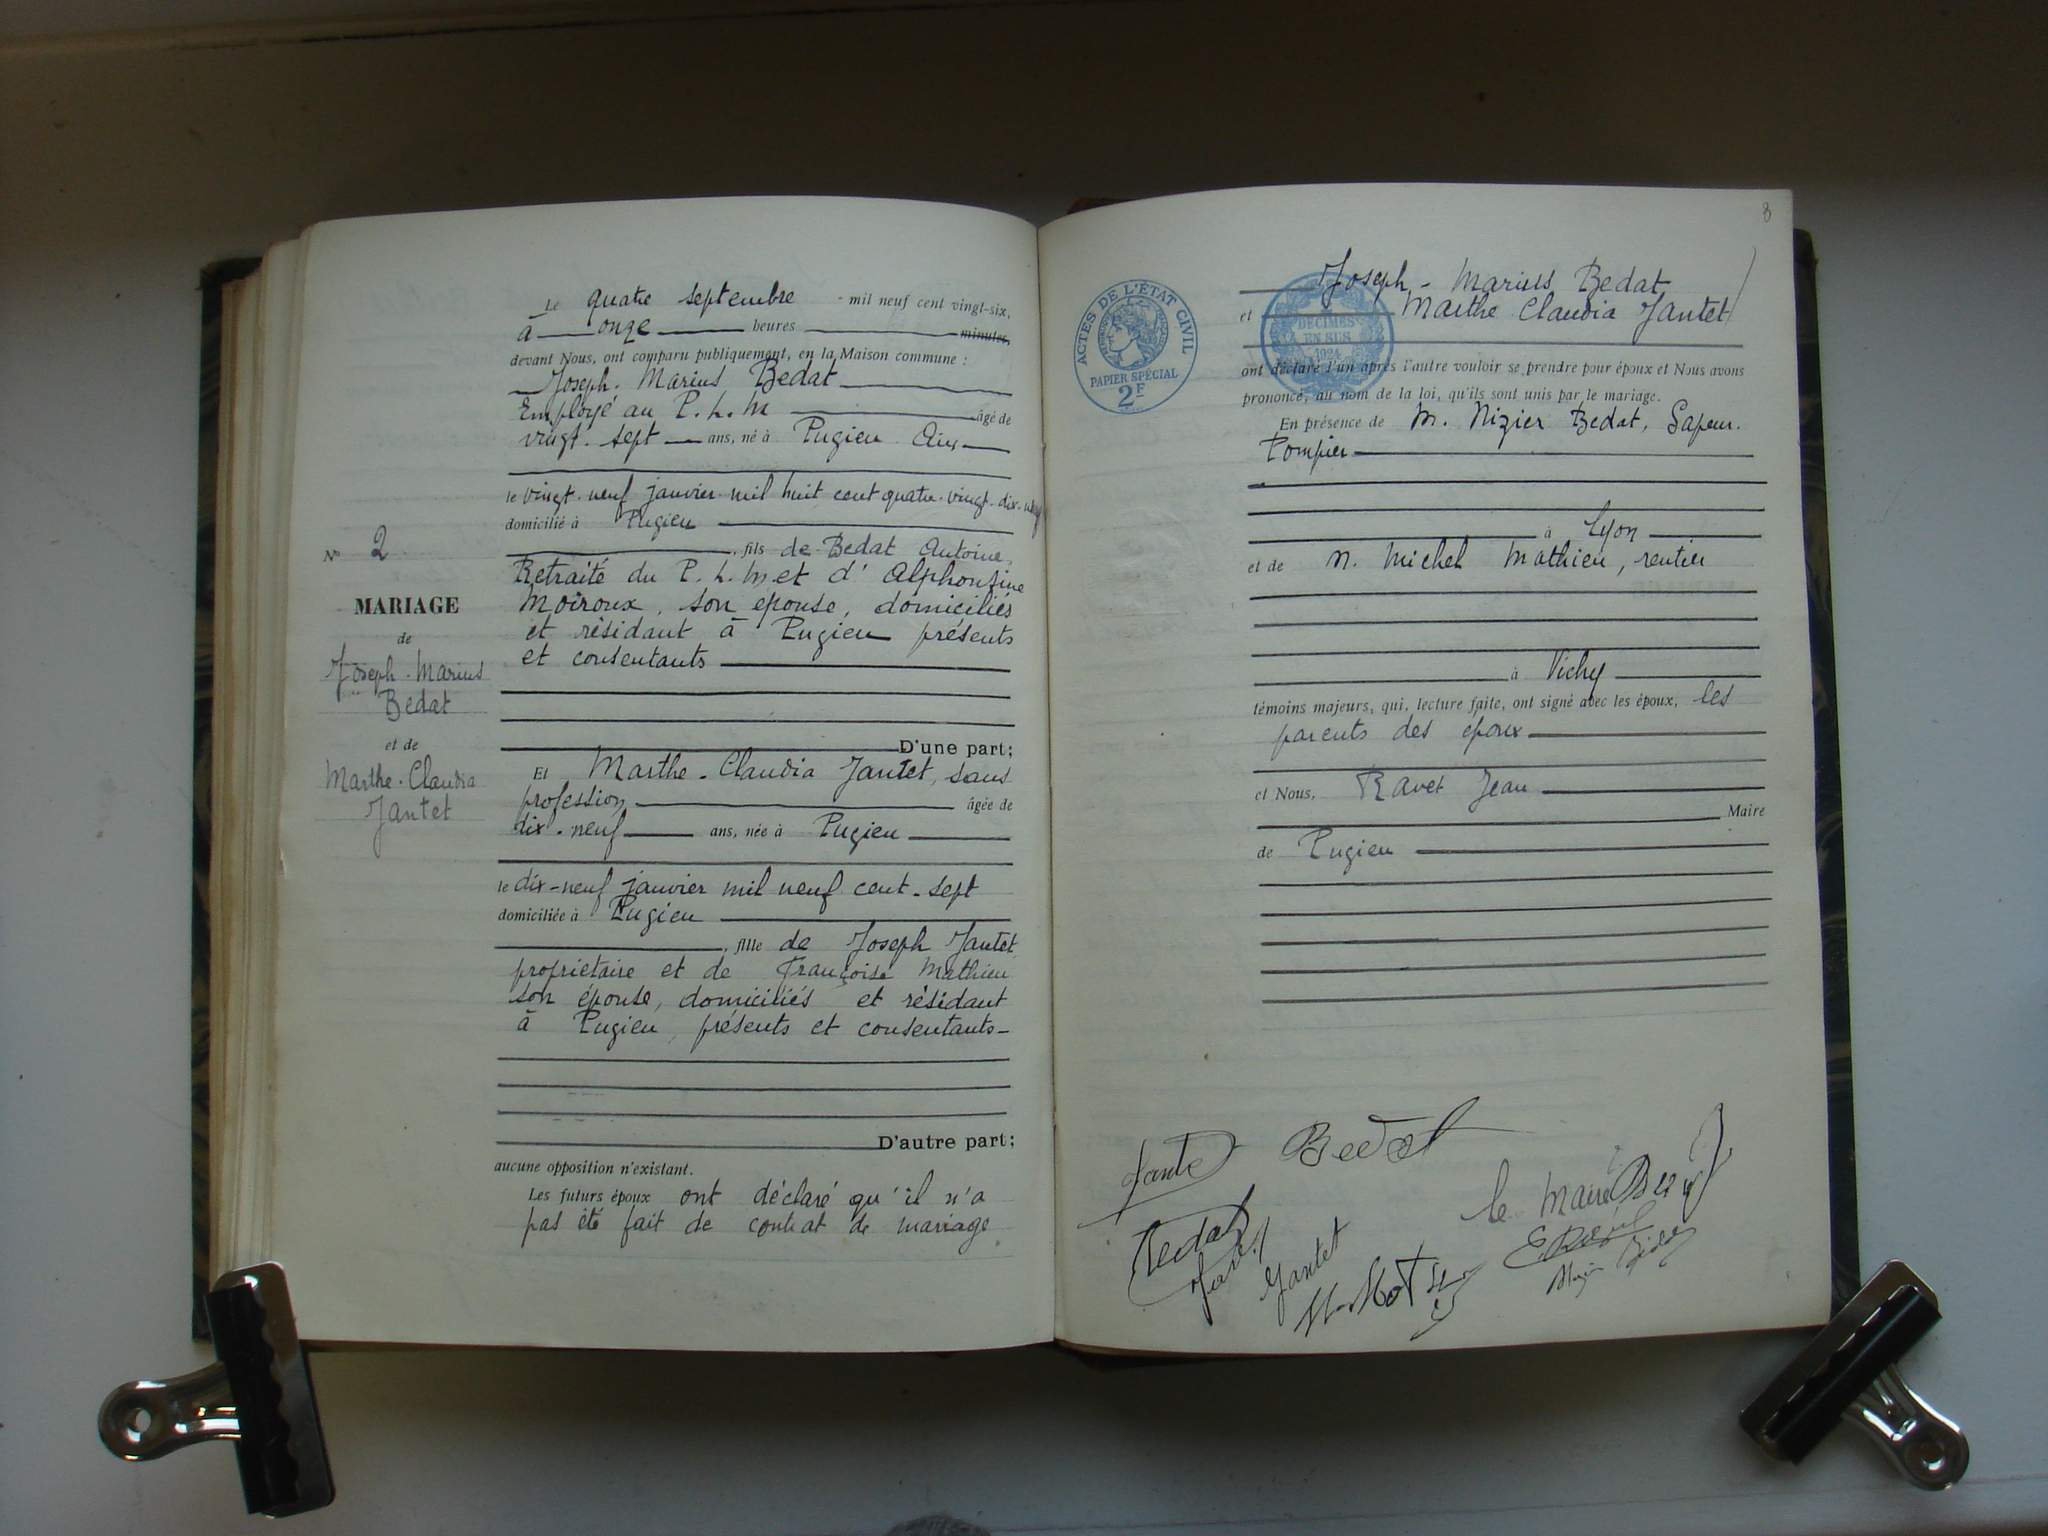 Le quatre septembre - mil neuf cent vingt-six,
à onze heures minutes,
devant Nous, ont comparu publiquement, en la Maison commune :
Joseph-Marius Bedat
Employé au P.L.M âgé de
vingt-sept ans, né à Pugieu Ain
le vingt-neuf janvier mil huit cent quatre-vingt-dix-neuf
domicilié à Pugieu
, fils de Bedat Antoine,
Retraité du P.L.M et d'Alphonsine
Moiroux, son épouse, domiciliés
et résidant à Pugieu présents
et consentants
D'une part;
N° 2
MARIAGE
de
Joseph-Marius
Bedat
et de
Marthe-Claudia
Jantet
Et Marthe-Claudia Jantet, sans
profession âgée de
dix-neuf ans, née à Pugieu
le dix-neuf janvier mil neuf cent-sept
domiciliée à Pugieu
, fille de Joseph Jantet
propriétaire et de Françoise Mathieu
son épouse, domiciliés et résidant
à Pugieu, présents et consentants-
D'autre part;
aucune opposition n'existant.
Les futurs époux ont déclaré qu'il n'a
pas été fait de contrat de mariage
8
ACTES DE L'ÉTAT CIVIL
PAPIER SPÉCIAL
2F
DECIMES
EN SUS
1924
Joseph-Marius Bedat
et Marthe Claudia Jantet
ont déclaré l'un après l'autre vouloir se prendre pour époux et Nous avons
prononcé, au nom de la loi, qu'ils sont unis par le mariage.
En présence de M. Nizier Bedat, Sapeur-
Pompier
à Lyon
et de M. Michel Mathieu, rentier
à Vichy
témoins majeurs, qui, lecture faite, ont signé avec les époux, les
parents des époux
et Nous, Ravet Jean
Maire
de Pugieu
Jantet Bedat
le Maire
Bedat
Jantet